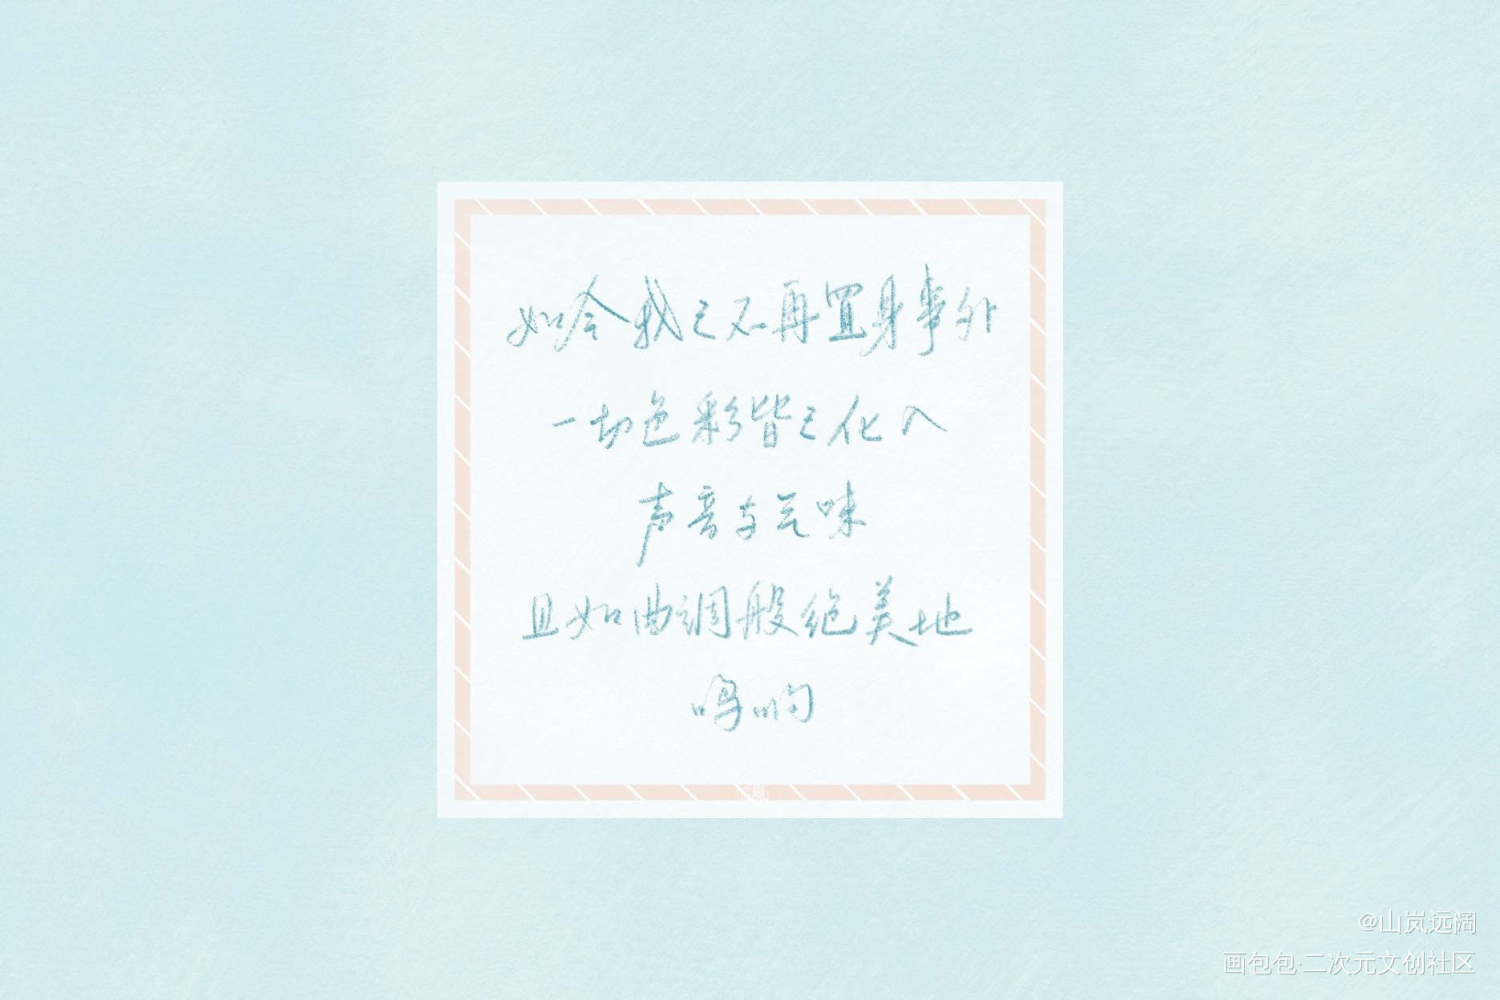 如今我已不再置身事外
一切色彩皆已化入
声音与气味
且如曲调般绝美地
鸣响
@山岚远阔
画包包·二次元文创社区